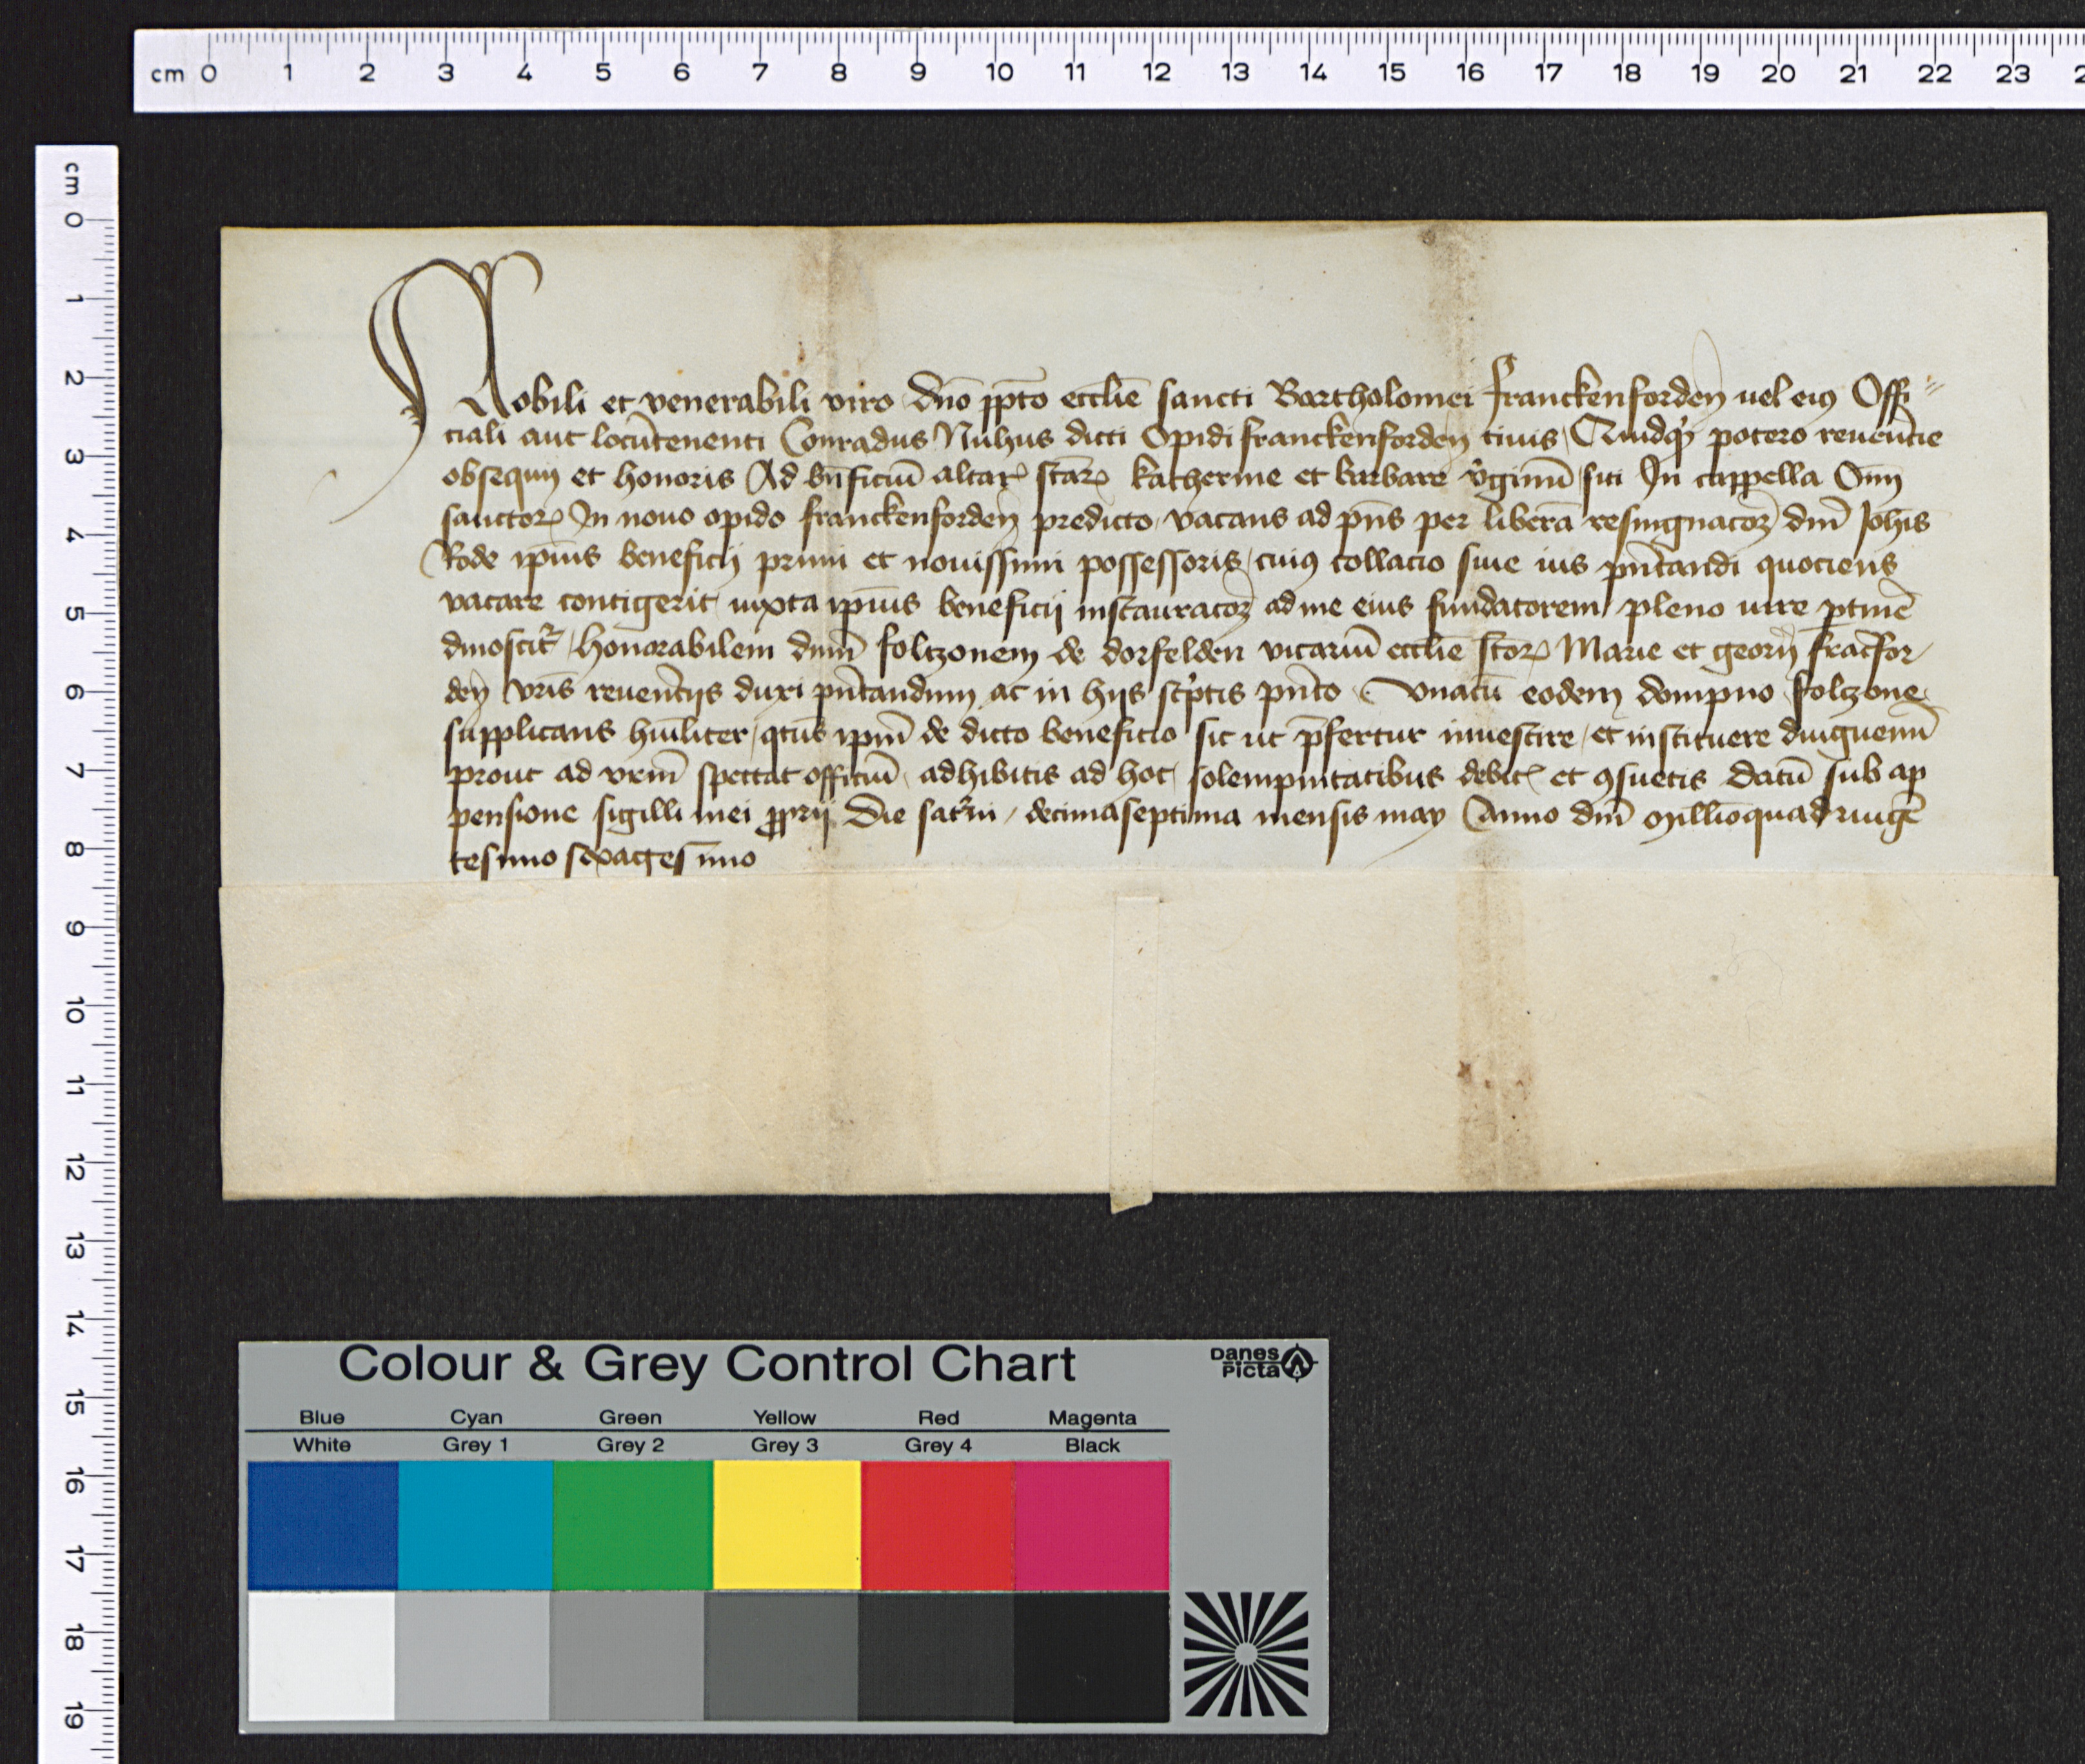 cm 0 1 2 3 4 5 6 7 8 9 10 11 12 13 14 15 16 17 18 19 20 21 22 23 2
cm 0 1 2 3 4 5 6 7 8 9 10 11 12 13 14 15 16 17 18 19
Nobili et venerabili viro dn̄o p̱pt̄o eccl̄ie sancti Bartholomei franckenforden̄ uel eiꝰ Offi⸗
ciali aut locūtenenti Conradus Nuhus dicti Opidi franckenforden̄ ciuis Quidqͥd potero reuerēncie
obsequij et honoris Ad bn̄ficiū altarꝭ stārꝝ katherine et barbare v̓ginū siti In cappella Om̄
sanctorꝝ In nouo opido franckenforden̄ predicto vacans ad pn̄s per liberā resingnacōꝫ dn̄i Joh̄is
Rode ip̄ius beneficij primi et nouissimi possessoris cuiꝰ collacio siue ius pn̄tandi quociens
vacare contigerit iuxta ip̄ius beneficij instauracōꝫ ad me eius fundatorem pleno iure ꝑtinē
dinoscit᷑ Honorabilem dn̄m folczonem de dorfelden vicariū eccl̄ie st̄orꝝ Marie et georīj francfor
den̄ vr̄is reueren̄cijs duxi pn̄tandum ac in hijs sc̓ptis pn̄to Vnacū eodem dompno folczone
supplicans hūiliter qt̄us ip̄m de dicto beneficio sic ut p̄fertur inuestire et instituere dingnemī
prout ad vr̄m̄ spectat officiū adhibitis ad hoc solempnitatibus debitꝭ et ꝯsuetis Datū sub ap
pensione sigilli mei ꝓprij Die sat᷑ni decimaseptima mensis may Anno dn̄i Millīoquadringē
tesimo sexagesimo
Colour & Grey Control Chart
Danes
Picta
Blue Cyan Green Yellow Red Magenta
White Grey 1 Grey 2 Grey 3 Grey 4 Black